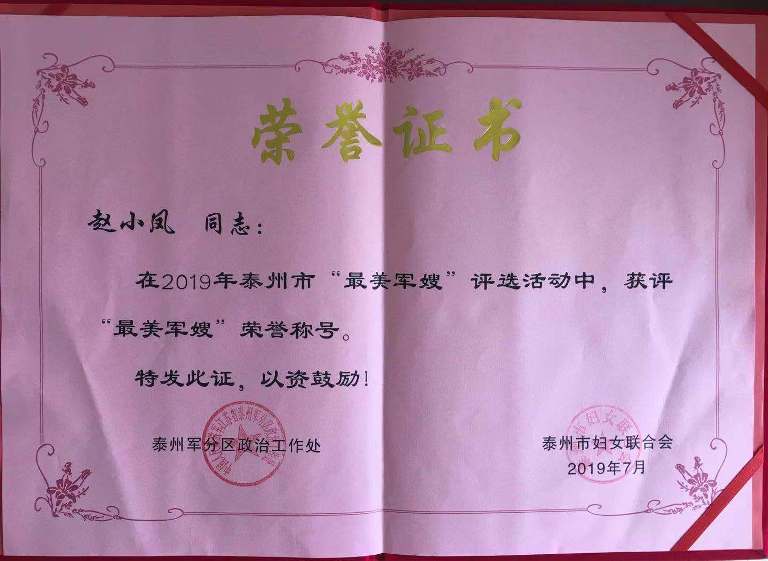 荣誉证书
赵小凤 同志：
在2019年泰州市“最美军嫂”评选活动中，获评
“最美军嫂”荣誉称号。
特发此证，以资鼓励！
泰州军分区政治工作处
泰州市妇女联合会
2019年7月